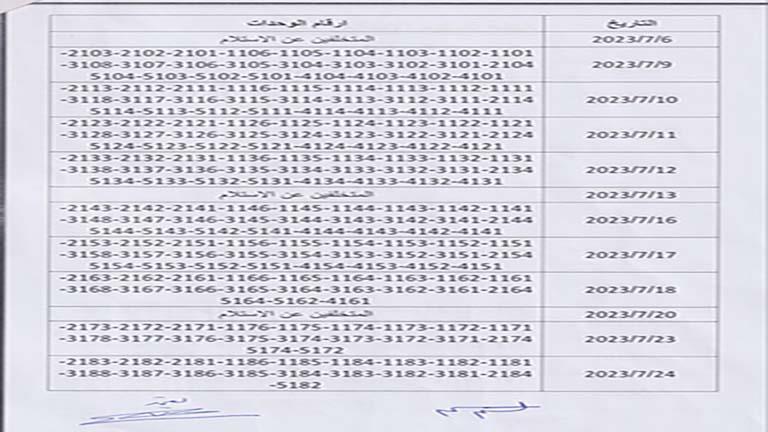 التاريخ ارقام الوحدات
2023/7/6 المتخلفين عن الاستلام
2023/7/9
-2103-2102-2101-1106-1105-1104-1103-1102-1101
-3108-3107-3106-3105-3104-3103-3102-3101-2104
5104-5103-5102-5101-4104-4103-4102-4101
2023/7/10
-2113-2112-2111-1116-1115-1114-1113-1112-1111
-3118-3117-3116-3115-3114-3113-3112-3111-2114
5114-5113-5112-5111-4114-4113-4112-4111
2023/7/11
-2123-2122-2121-1126-1125-1124-1123-1122-1121
-3128-3127-3126-3125-3124-3123-3122-3121-2124
5124-5123-5122-5121-4124-4123-4122-4121
2023/7/12
-2133-2132-2131-1136-1135-1134-1133-1132-1131
-3138-3137-3136-3135-3134-3133-3132-3131-2134
5134-5133-5132-5131-4134-4133-4132-4131
2023/7/13 المتخلفين عن الاستلام
2023/7/16
-2143-2142-2141-1146-1145-1144-1143-1142-1141
-3148-3147-3146-3145-3144-3143-3142-3141-2144
5144-5143-5142-5141-4144-4143-4142-4141
2023/7/17
-2153-2152-2151-1156-1155-1154-1153-1152-1151
-3158-3157-3156-3155-3154-3153-3152-3151-2154
5154-5153-5152-5151-4154-4153-4152-4151
2023/7/18
-2163-2162-2161-1166-1165-1164-1163-1162-1161
-3168-3167-3166-3165-3164-3163-3162-3161-2164
5164-5162-4161
2023/7/20 المتخلفين عن الاستلام
2023/7/23
-2173-2172-2171-1176-1175-1174-1173-1172-1171
-3178-3177-3176-3175-3174-3173-3172-3171-2174
5174-5172
2023/7/24
-2183-2182-2181-1186-1185-1184-1183-1182-1181
-3188-3187-3186-3185-3184-3183-3182-3181-2184
-5182